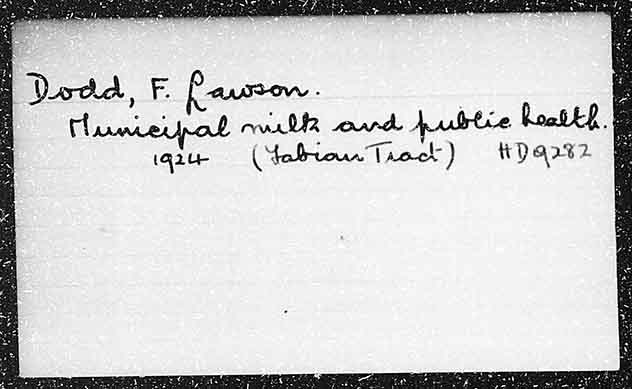 Dodd, F. Lawson.
Municipal milk and public health.
1924 (Fabian Tract) HD9282